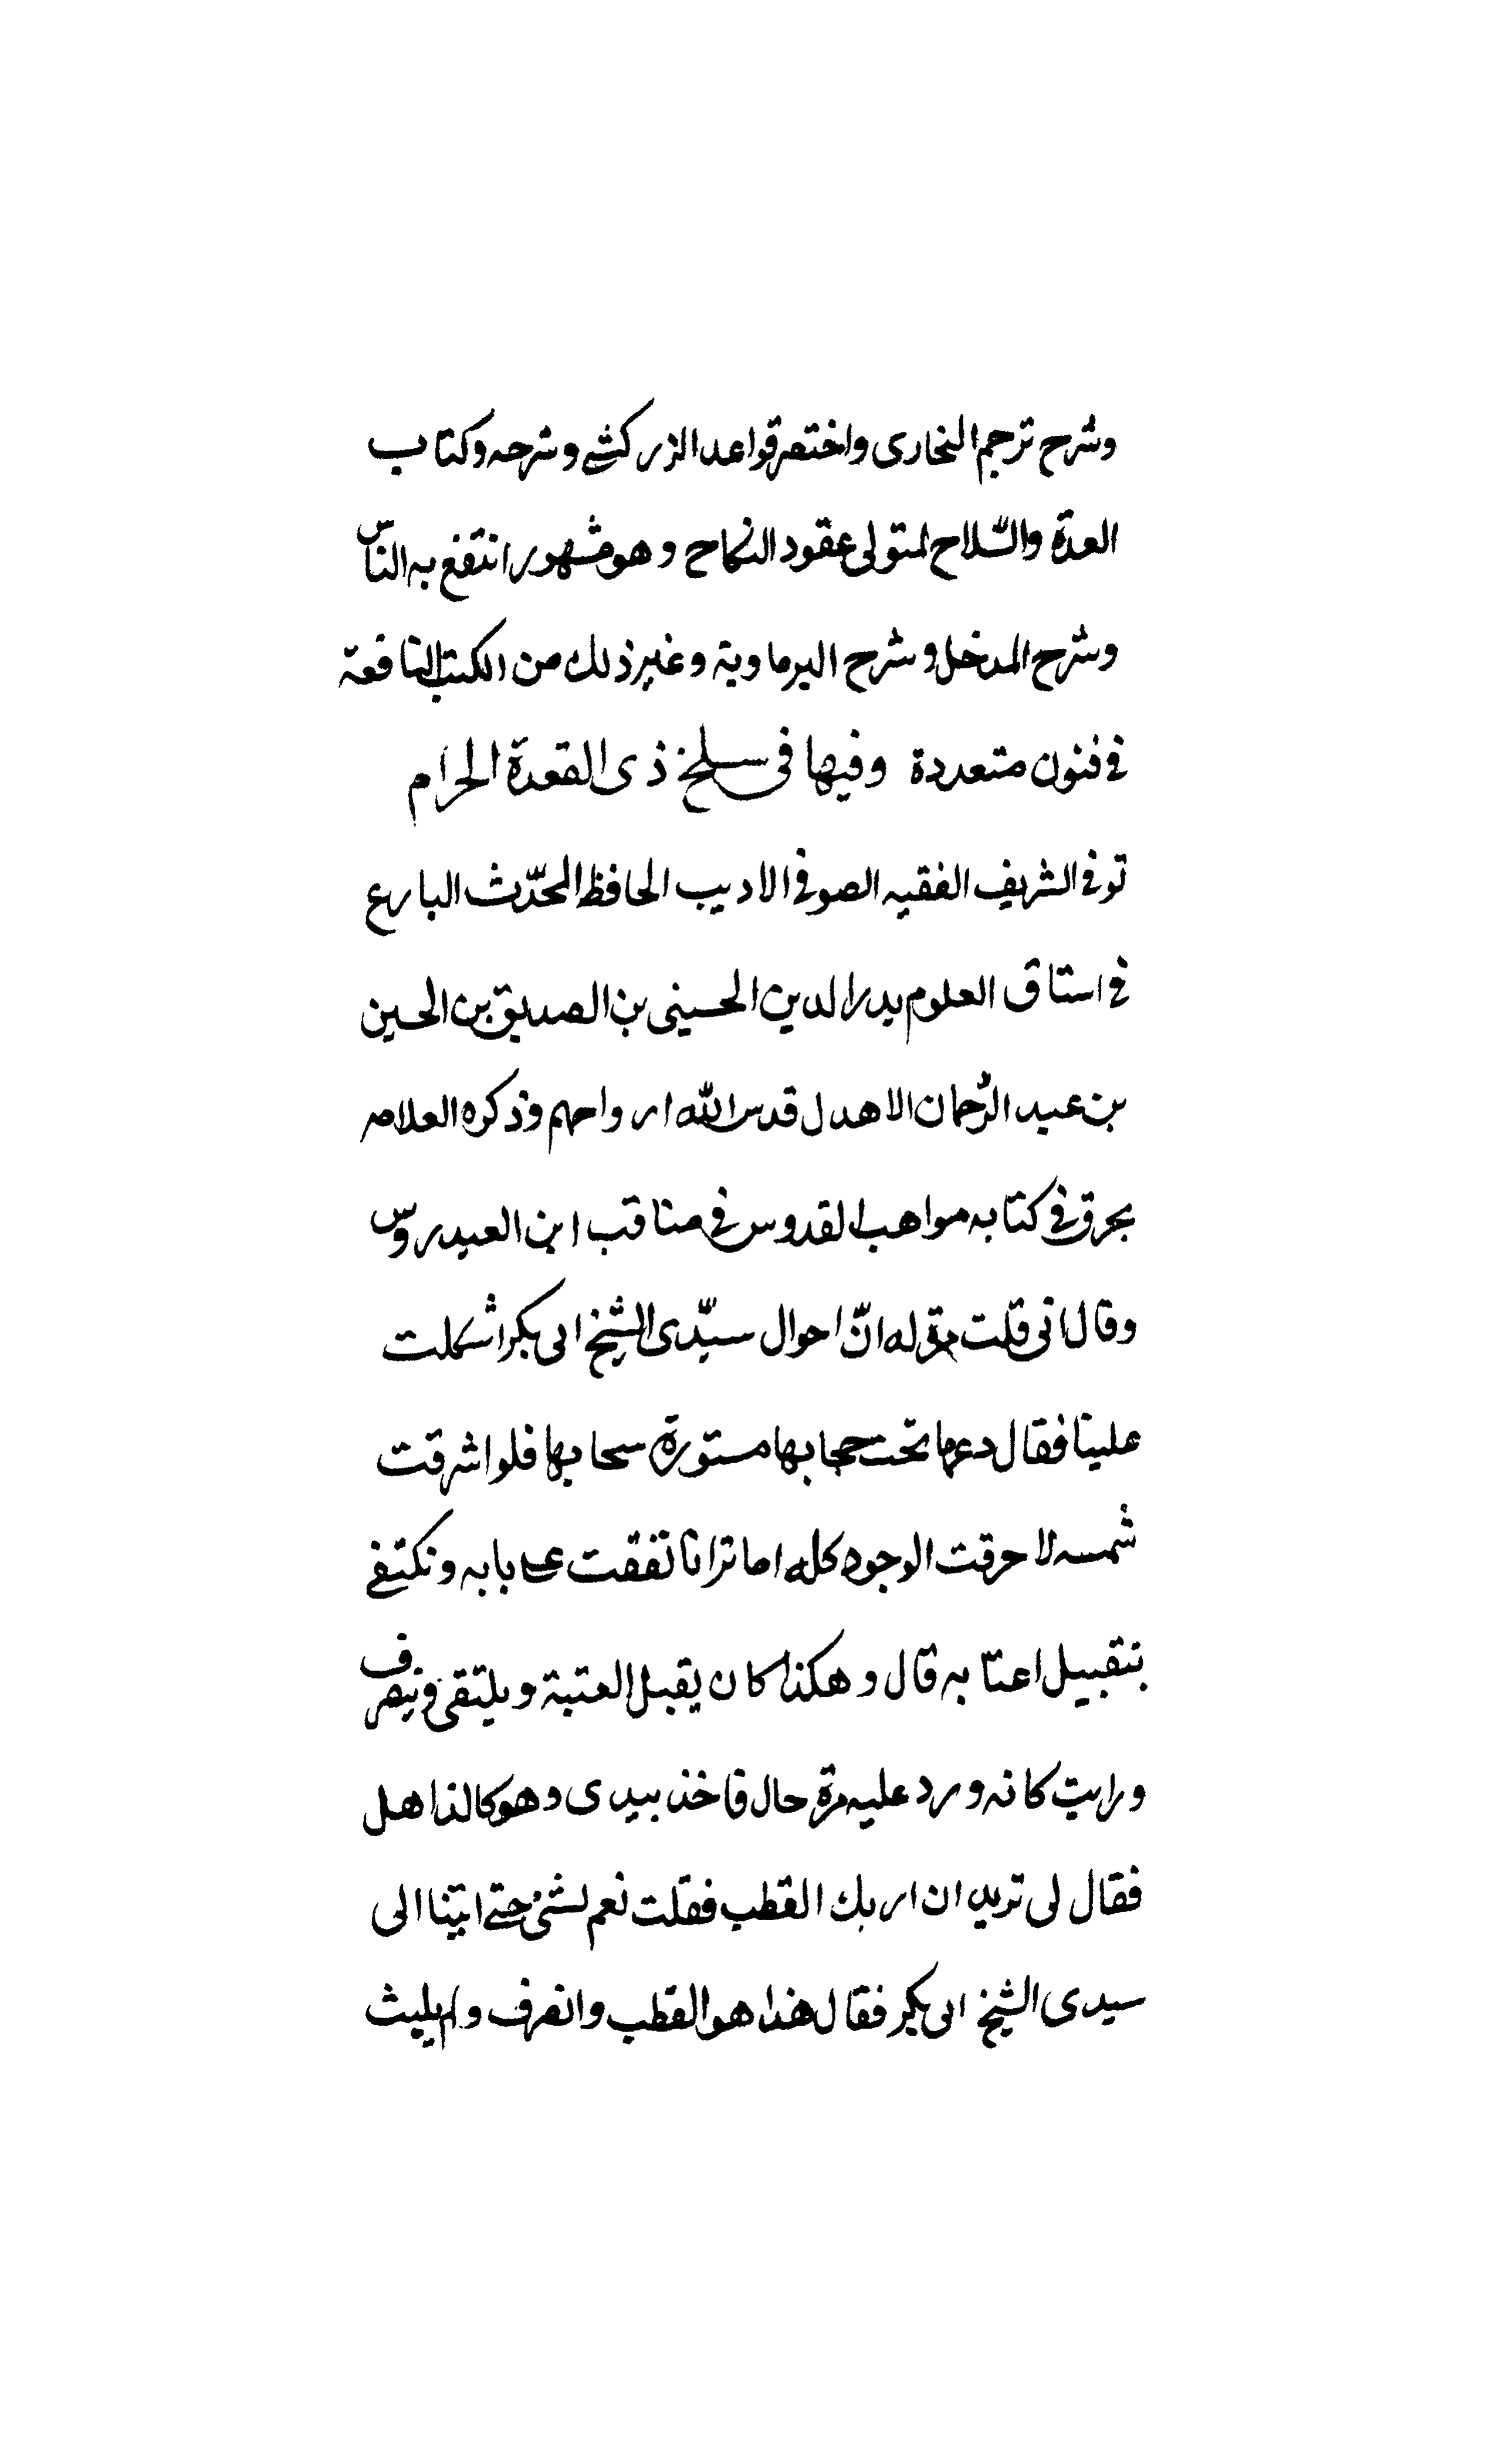 وشرح ترجم البخارى واختصر قواعد الزركشے وشرحه وكتاب
العدة والسّلاح لمتولى عقود النكاح وهو مشهور انتفع به الناس
وشرح المدخل وشرح البرماوية وغير ذلك من الكتب النافعة
فى فنون متعددة وفيها فى سلخ ذى القعدة الحرام
توفى الشريف الفقيه الصوفى الاديب الحافظ المحدّث البارع
فى استاق العلوم بدر الدين الحسينى بن الصديق بن الحسين
بن عبد الرّحمان الاهدل قدس الله ارواحهم وذكره العلامه
بحرق فى كتابه مواهب القدوس فى مناقب ابن العيدروس
وقال انى قلت مرّة له انّ احوال سيّدى الشيخ ابى بكر اشكلت
علينا فقال دعها تحت حجابها مستورة سحابها فلو اشرقت
شمسه لاحرقت الوجود كله اما ترانا نقفت على بابه ونكتفے
بتقبيل اعتابه قال وهكذا كان يقبل العتبة ويلتقى وينصرف
ورايت كانه ورد عليه مرة حال فاخذ بيدى وهو كالذاهل
فقال لى تريد ان اريك القطب فقلت نعم لشئ حتے اتينا الى
سيدى الشيخ ابى بكر فقال هذا هو القطب وانصرف ولم يلبث